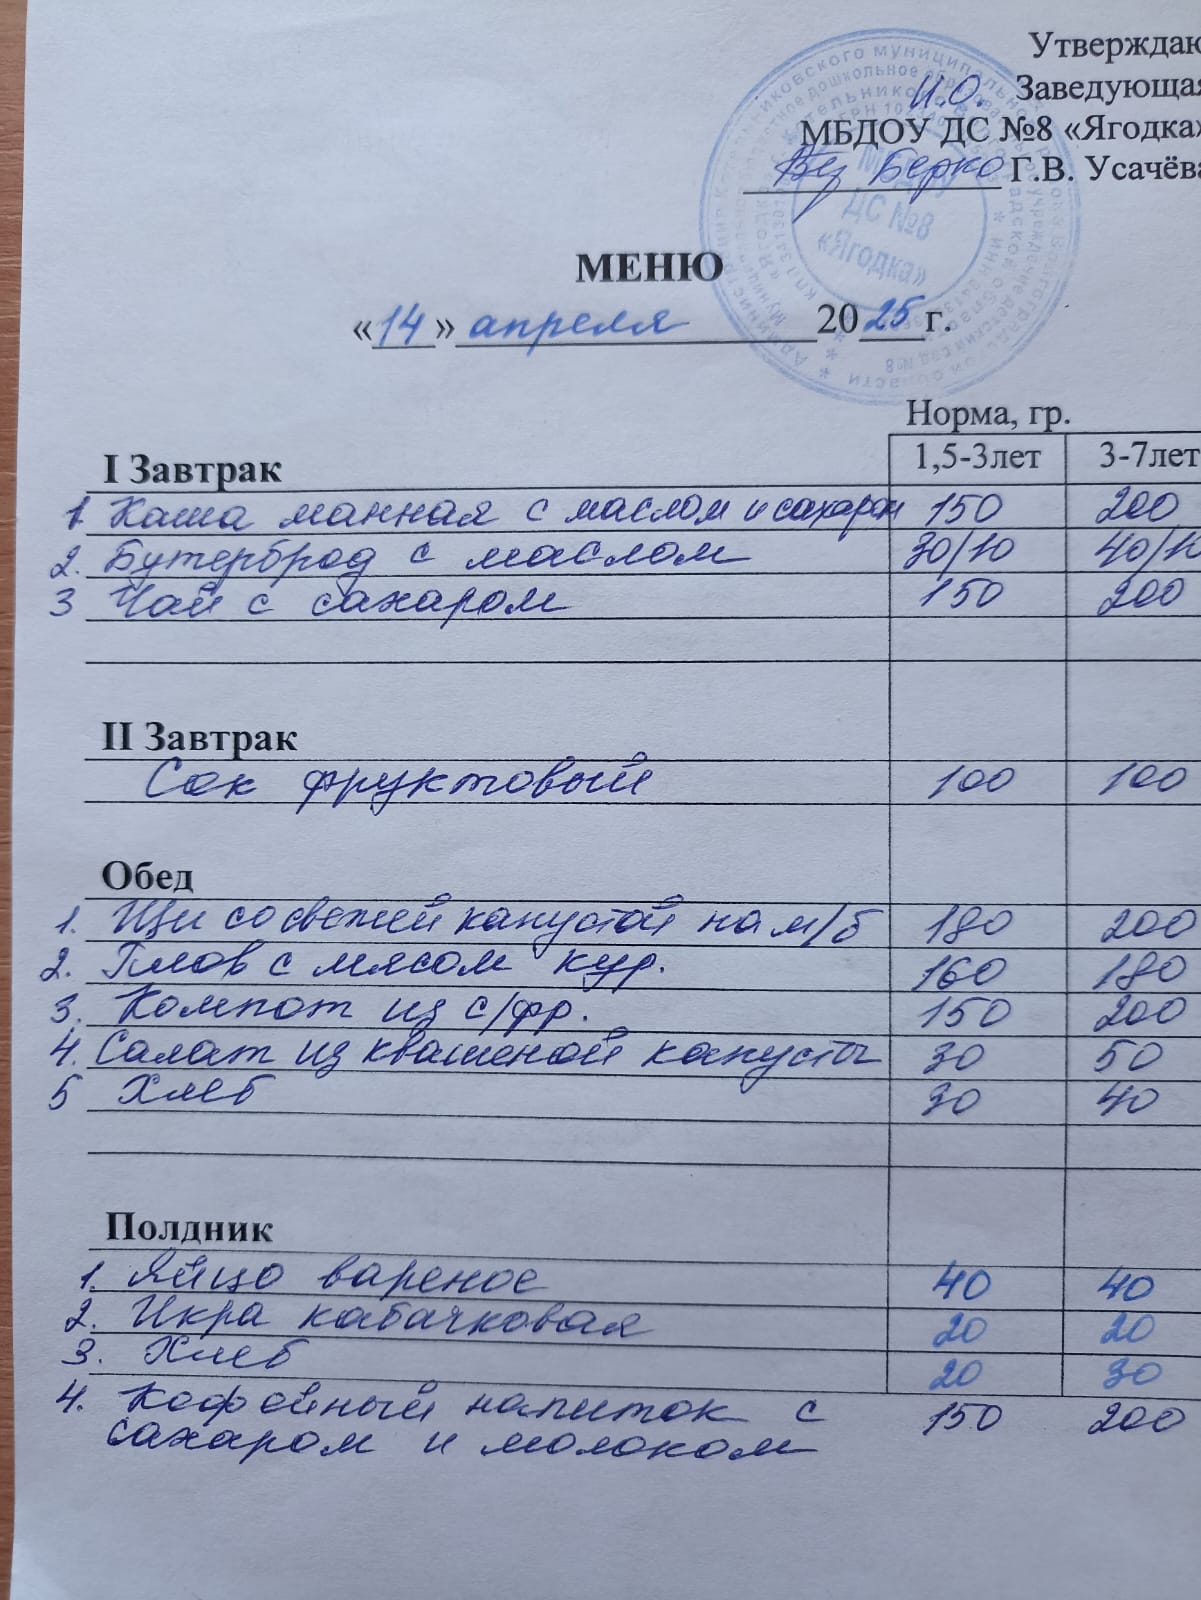 Утверждаю
И.О. Заведующая
МБДОУ ДС №8 «Ягодка»
Г.В. Усачёва
МБДОУ
ДС №8
«Ягодка»
МЕНЮ
«14» апреля 2025 г.
Норма, гр.
I Завтрак 1,5-3лет 3-7лет
1. Каша манная с маслом и сахаром 150 200
2. Бутерброд с маслом 30/10 40/10
3 Чай с сахаром 150 200
II Завтрак
Сок фруктовый 100 100
Обед
1. Щи со свежей капустой на м/б 180 200
2. Плов с мясом кур. 160 180
3. Компот из с/фр. 150 200
4. Салат из квашеной капусты 30 50
5 Хлеб 30 40
Полдник
1. Яйцо вареное 40 40
2. Икра кабачковая 20 20
3. Хлеб 20 30
4. Кофейный напиток с 150 200
сахаром и молоком